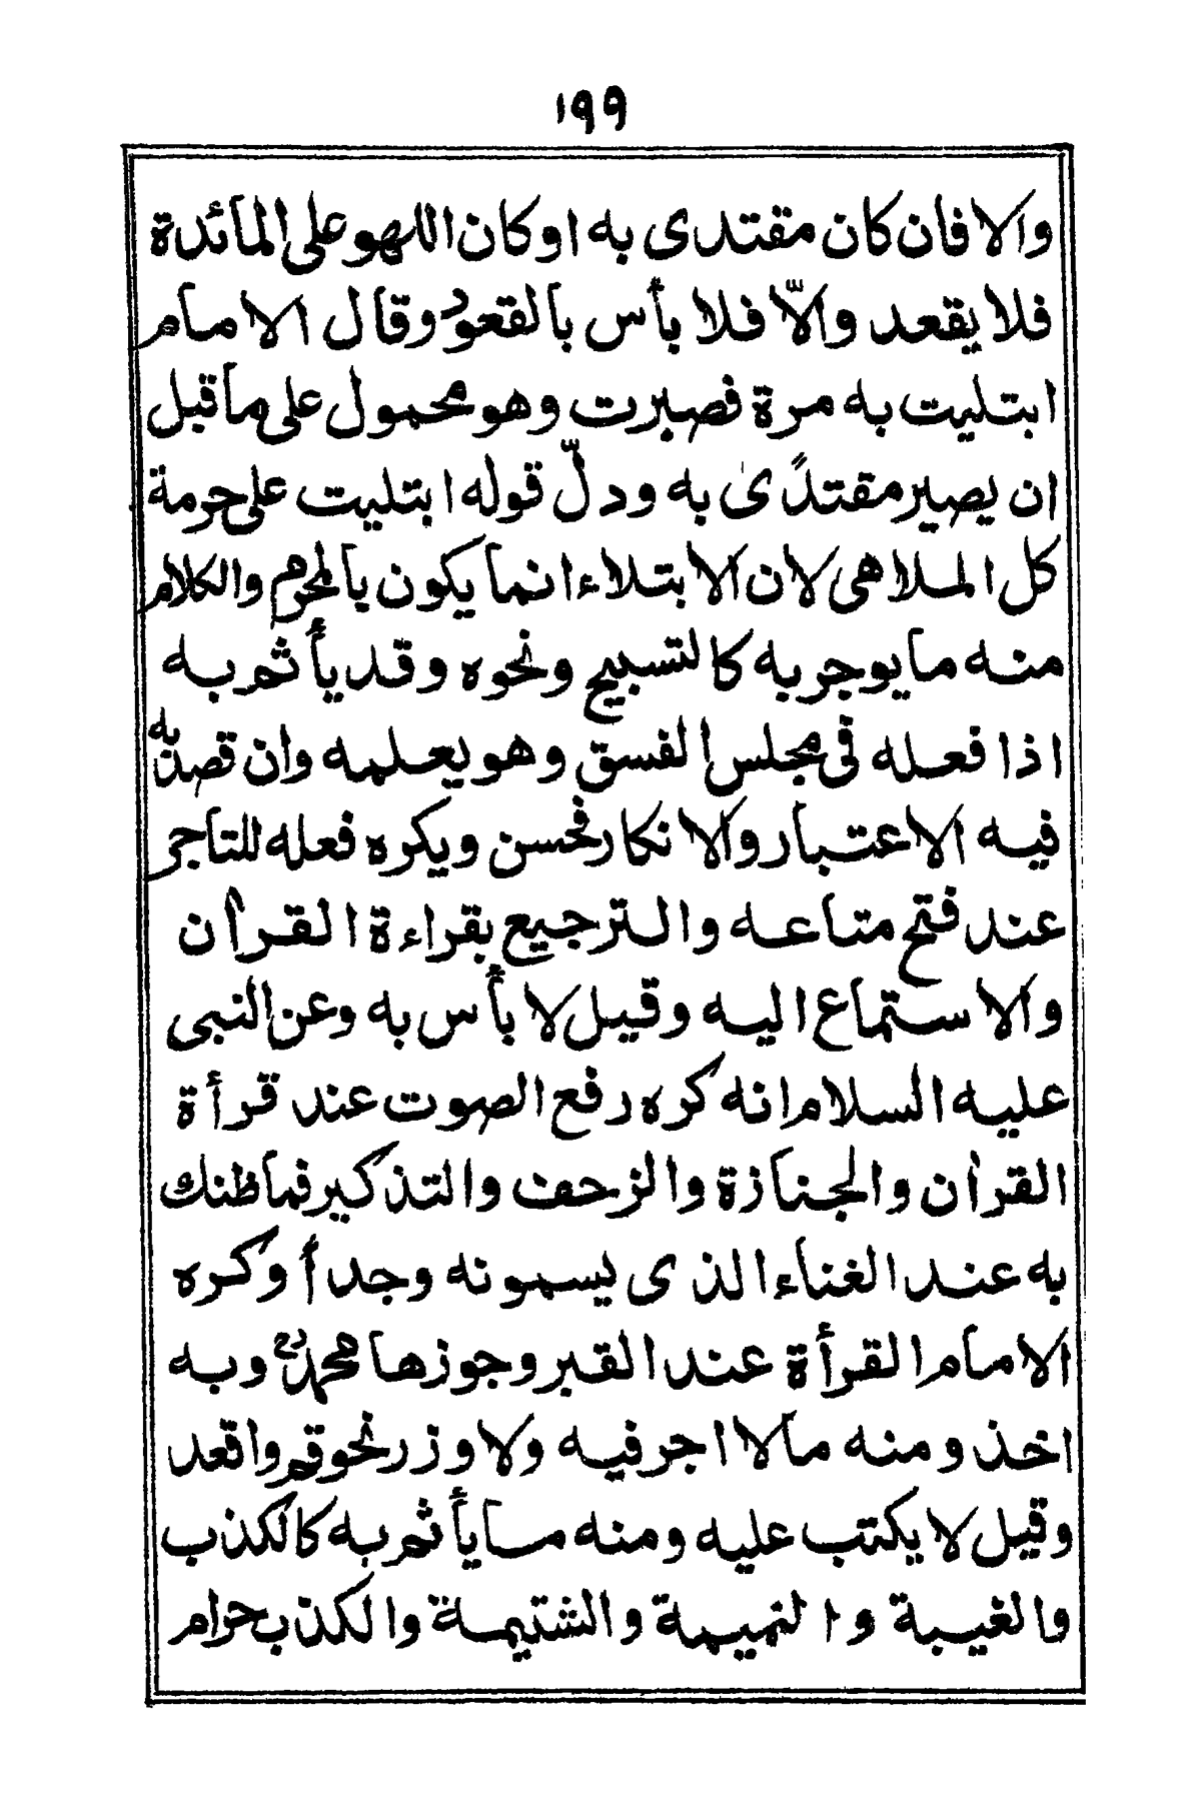 ١٩٩
والا فان كان مقتدى به او كان اللهو على المائدة
فلا يقعد والّا فلا بأس بالقعود وقال الامام
ابتليت به مرة فصبرت وهو محمول على ما قبل
ان يصير مقتدًى به ودلّ قوله ابتليت على حرمة
كل الملاهى لان الابتلاء انما يكون بالمحرم والكلام
منه ما يوجر به كالتسبيح ونحوه وقد يأثم به
اذا فعله فى مجلس الفسق وهو يعلمه وان قصد به
فيه الاعتبار والانكار فحسن ويكره فعله للتاجر
عند فتح متاعه والترجيع بقراءة القرأن
والاستماع اليه وقيل لا بأس به وعن النبى
عليه السلام انه كره رفع الصوت عند قرأة
القرأن والجنازة والزحف والتذكير فما ظنك
به عند الغناء الذى يسمونه وجداً وكره
الامام القرأة عند القبر وجوزها محمد وبه
اخذ ومنه ما لا اجر فيه ولا وزر نحو قم واقعد
وقيل لا يكتب عليه ومنه ما يأثم به كالكذب
والغيبة والنميمة والشتيمة والكذب حرام